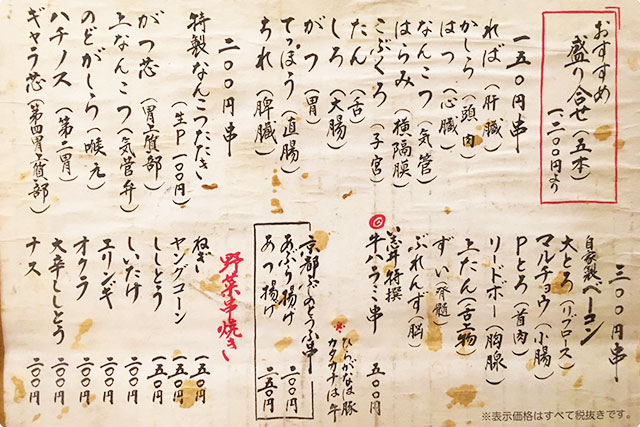 おすすめ
盛り合せ(五本)
(一二〇〇円より)
一五〇円串
れば(肝臓)
かしら(頭肉)
はつ(心臓)
なんこつ(気管)
はらみ(横隔膜)
こぶくろ(子宮)
たん(舌)
しろ(大腸)
がつ(胃)
てっぽう(直腸)
ちれ(脾臓)
二〇〇円串
特製なんこつたたき
(生P一〇〇円)
がつ芯(胃上質部)
上なんこつ(気管弁)
のどがしら(喉元)
ハチノス(第二胃)
ギャラ芯(第四胃上質部)
三〇〇円串
自家製ベーコン
大とろ(リブロース)
マルチョウ(小腸)
Pとろ(首肉)
リードボー(胸腺)
上たん(舌上物)
ずい(脊髄)
ぶれんず(脳)
特撰
◎牛ハラミ串 五〇〇円
※ひらがなは豚
カタカナは牛
京都のとうふ串
あぶり揚げ 二〇〇円
あつ揚げ 二五〇円
野菜串焼き
ねぎ 一五〇円
ヤングコーン 一五〇円
ししとう 一五〇円
しいたけ 二〇〇円
エリンギ 二〇〇円
オクラ 二〇〇円
大辛ししとう 二〇〇円
ナス 二〇〇円
※表示価格はすべて税抜きです。